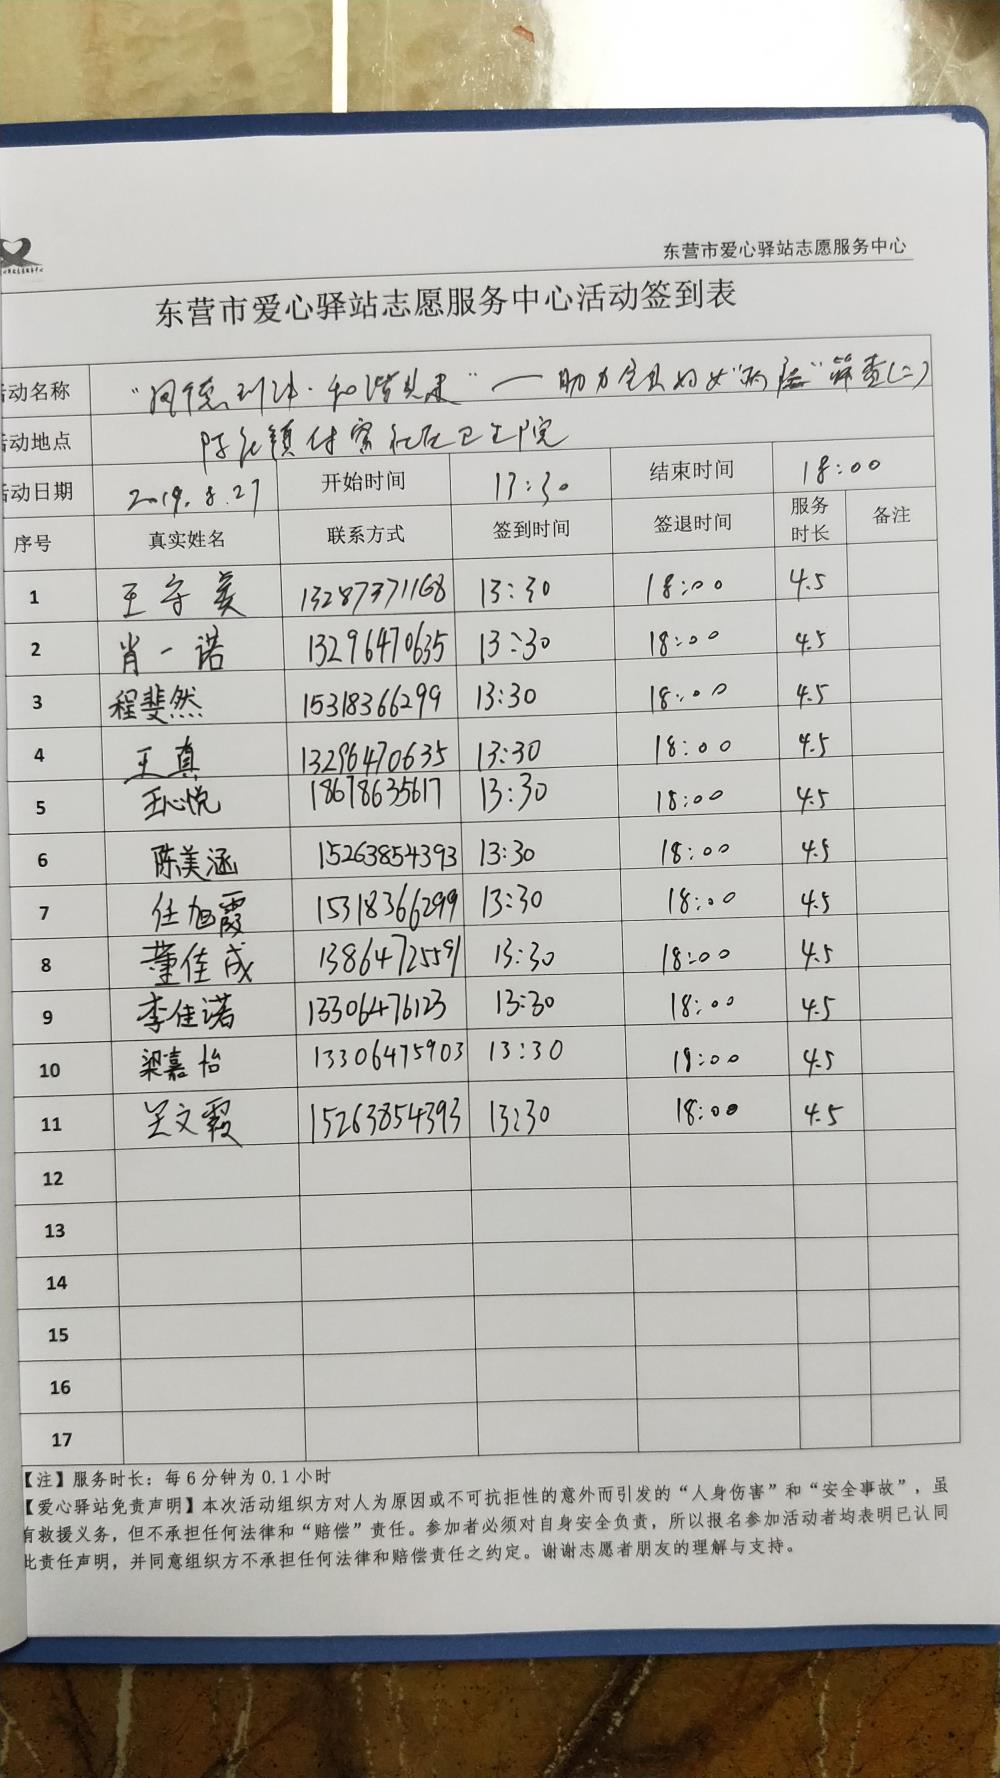 东营市爱心驿站志愿服务中心
东营市爱心驿站志愿服务中心活动签到表
活动名称 "同德 · 和谐共建"—助力全县妇女"两癌"筛查(二)
活动地点 镇付窝社区卫生院
活动日期 2019.8.27 开始时间 13:30 结束时间 18:00
序号 真实姓名 联系方式 签到时间 签退时间 服务时长 备注
1 王守美 13287371168 13:30 18:00 4.5
2 肖一诺 13296470635 13:30 18:00 4.5
3 程斐然 15318366299 13:30 18:00 4.5
4 王真 13296470635 13:30 18:00 4.5
5 王心悦 18678635617 13:30 18:00 4.5
6 陈美涵 15263854393 13:30 18:00 4.5
7 任旭霞 15318366299 13:30 18:00 4.5
8 董佳成 13864725591 13:30 18:00 4.5
9 李佳诺 13306476123 13:30 18:00 4.5
10 梁嘉怡 13306475903 13:30 18:00 4.5
11 吴文霞 15263854393 13:30 18:00 4.5
12
13
14
15
16
17
【注】服务时长：每6分钟为0.1小时
【爱心驿站免责声明】本次活动组织方对人为原因或不可抗拒性的意外而引发的“人身伤害”和“安全事故”，虽
有救援义务，但不承担任何法律和“赔偿”责任。参加者必须对自身安全负责，所以报名参加活动者均表明已认同
此责任声明，并同意组织方不承担任何法律和赔偿责任之约定。谢谢志愿者朋友的理解与支持。